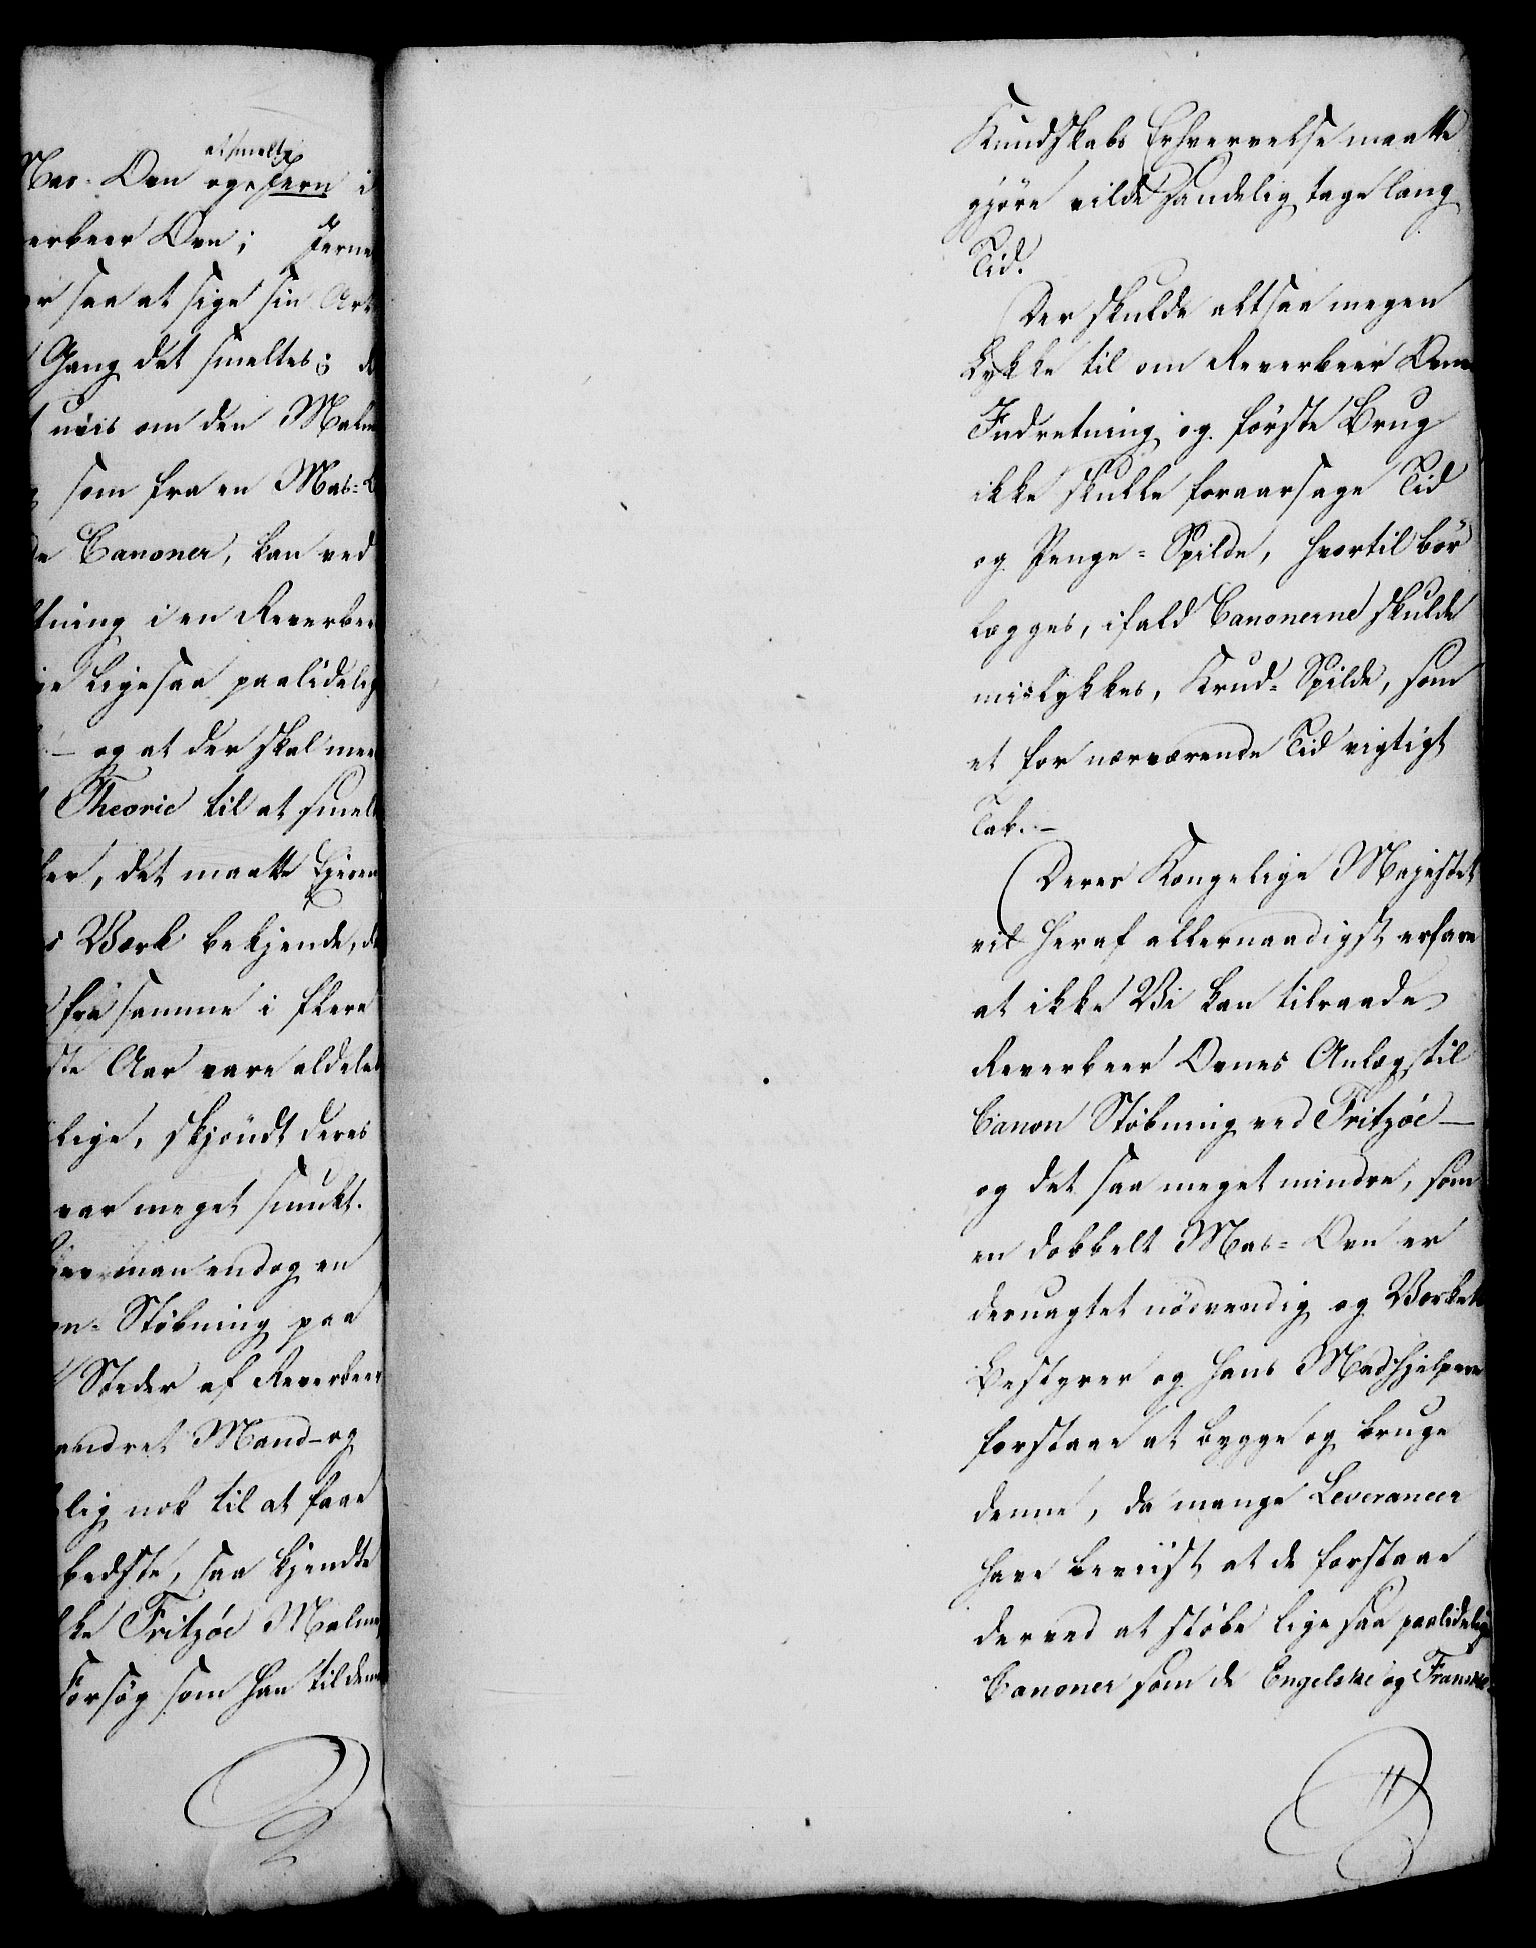 at smelte
Mas-Ovn og Jern i
erbeer Ovn; Jerne
er saa at sige sin Art
Gang det smeltes; d
uvis om den Malm
som fra en Mas-O
de Canoner, kan ved
ltning i en Reverbee
ie ligesaa paalidelig
– og at der skal mee
Theorie til at smel
ler, det maatte Eieren
s Værk bekjende, d
fra samme i flere
ste Aar vare aldeles
lige, skjöndt deres
var meget smukt.
man endog en
on-Stöbning paa
Steder af Reverbeer
andret Mand- og
lig nok til at faae
bedste, saa kjendte
ke Fritzöe Malme,
Forsög som han til den
Kundskabs Erhvervelse maatte
gjöre vilde sandelig tage lang
Tid.
Der skulde altsaa megen
Lykke til om Reverbeer Ovne
Indretning og förste Brug
ikke skulle foraarsage Tid
og Penge-Spilde, hvortil bör
lægges, ifald Canonerne skulde
mislykkes, Krud-Spilde, som
et for nærværende Tid vigtigt
Tab.–
Deres Kongelige Majestet
vil heraf allernaadigst erfare
at ikke Vi kan tilraade
Reverbeer Ovnes Anlæg til
Canon Stöbning ved Fritzöe –
og det saa meget mindre, som
en dobbelt Mas-Ovn er
desuagtet nödvendig og Værkets
Bestyrer og hans Medhjelpere
forstaae at bygge og bruge
denne, da mange Leverancer
have beviist at de forstaae
derved at stöbe lige saa paalidelige
Canoner som de Engelske og Franske.